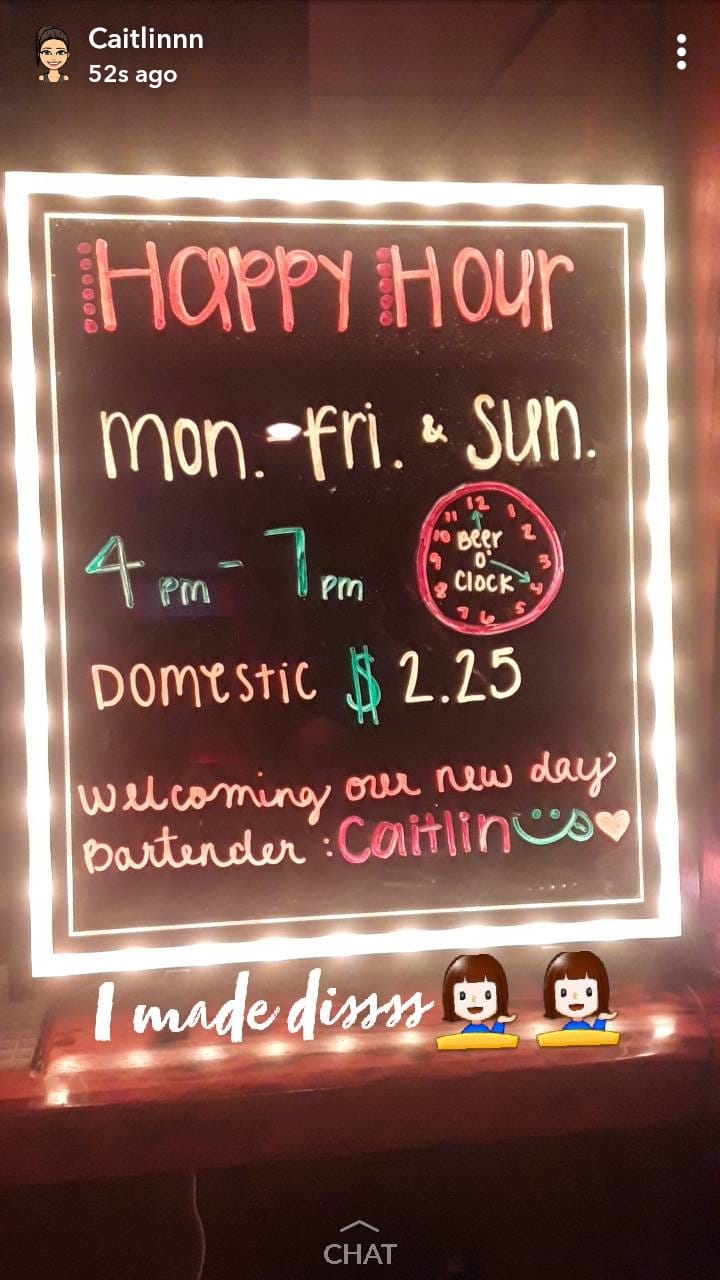 Caitlinnn
52s ago
Happy Hour
mon. - fri. & sun.
4 pm - 7 pm
12
11 1
10 Beer 2
9 O' 3
8 CLOCK 4
7 6 5
DOMESTIC $ 2.25
Welcoming our new day
Bartender : Caitlin
I made dissss
CHAT